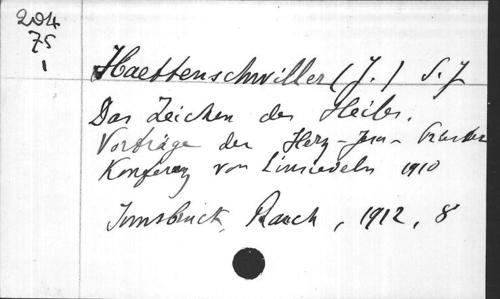 204
75
1
Haettenschwiller (J.) S.J
Das Zeichen des Heiles.
Vorträge der Herz-Jesu-Priester
Konferenz von Einsiedeln 1910
Innsbruck, Rauch, 1912, 8